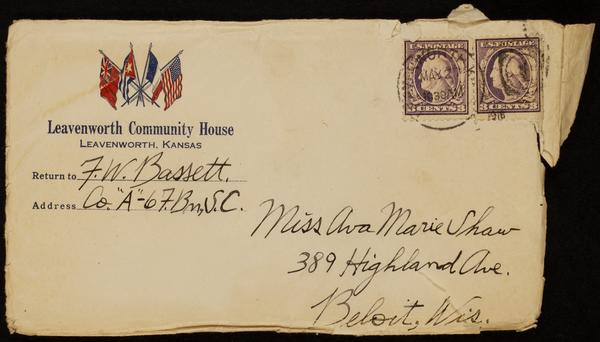 U.S. POSTAGE U.S. POSTAGE
MAY 2
830AM
3 CENTS 3 3 CENTS 3
1918
Leavenworth Community House
LEAVENWORTH, KANSAS
Return to F. W. Bassett.
Address Co. "A"-6 F. Bn, S.C.
Miss Ava Marie Shaw
389 Highland Ave.
Beloit, Wis.